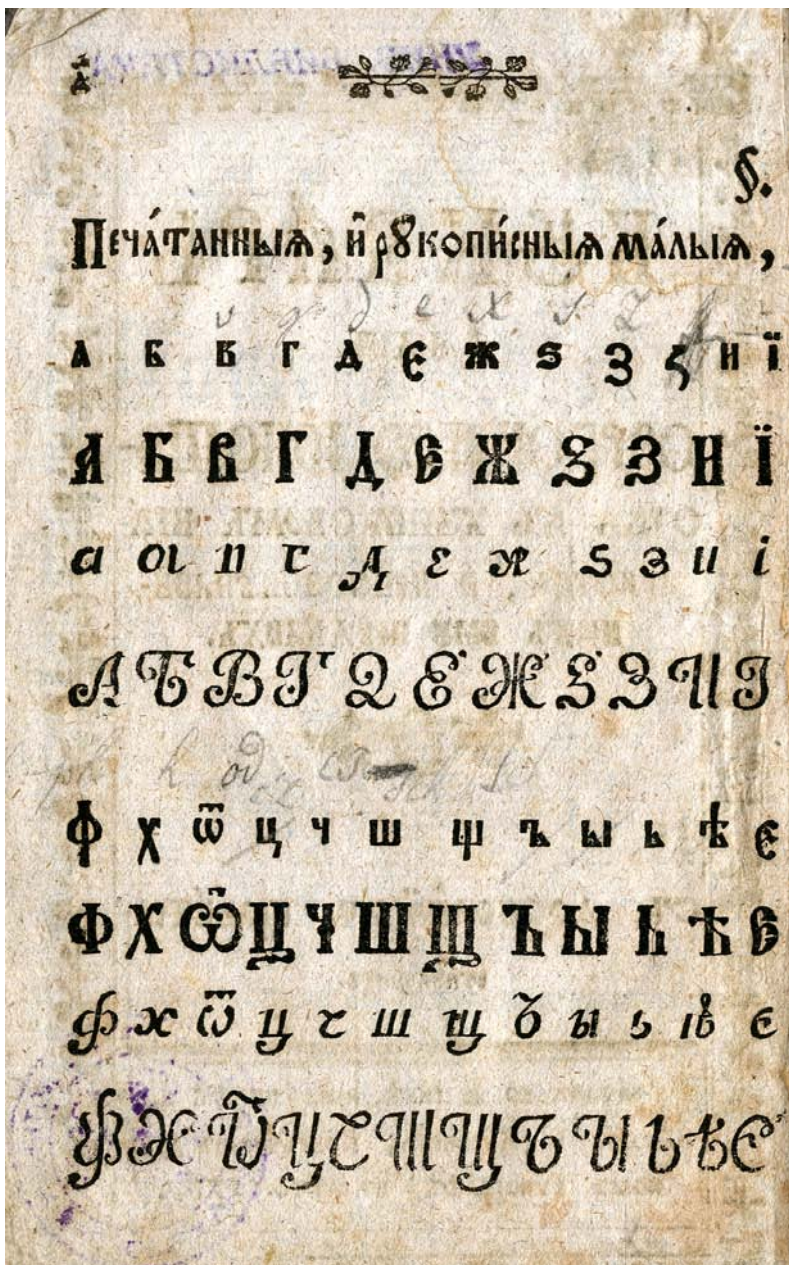 §.
Печа́танныѧ, и҆ рꙋкопи́сныѧ ма́лыѧ,
v g d e x s z
а б в г д є ж ѕ з ҁ и ї
А Б В Г Д Е Ж Ѕ З И Ї
а б в г д е ж ѕ з и і
А Б В Г Д Е Ж Ѕ З И І
ph h
ф х ѿ ц ч ш щ ъ ы ь ѣ є
Ф Х Ѿ Ц Ч Ш Щ Ъ Ы Ь Ѣ Є
ф х ѿ ц ч ш щ ъ ы ь ѣ є
Ф Х Ѿ Ц Ч Ш Щ Ъ Ы Ь Ѣ Є